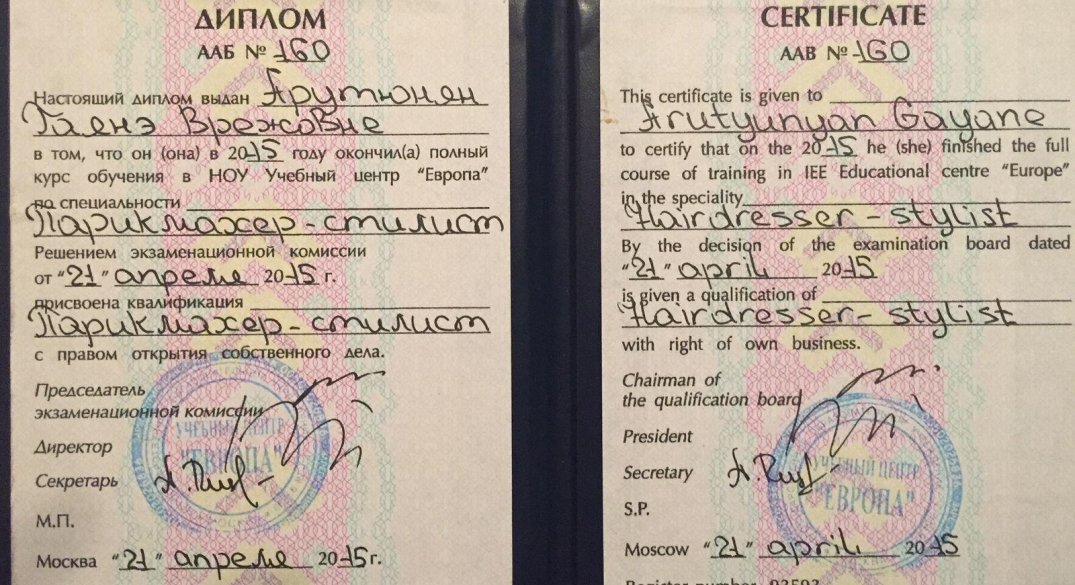 ДИПЛОМ
ААБ № 160
Настоящий диплом выдан Арутюнян
Гаянэ Врежовне
в том, что он (она) в 2015 году окончил(а) полный
курс обучения в НОУ Учебный центр "Европа"
по специальности
Парикмахер-стилист
Решением экзаменационной комиссии
от "21" апреля 2015 г.
присвоена квалификация
Парикмахер-стилист
с правом открытия собственного дела.
Председатель
экзаменационной комиссии
Директор
Секретарь
М.П.
Москва "21" апреля 2015г.
УЧЕБНЫЙ ЦЕНТР
"ЕВРОПА"
CERTIFICATE
AAB № 160
This certificate is given to
Arutyunyan Gayane
to certify that on the 2015 he (she) finished the full
course of training in IEE Educational centre "Europe"
in the speciality
Hairdresser-stylist
By the decision of the examination board dated
"21" april 2015
is given a qualification of
Hairdresser-stylist
with right of own business.
Chairman of
the qualification board
President
Secretary
S.P.
Moscow "21" april 2015
УЧЕБНЫЙ ЦЕНТР
"ЕВРОПА"
Register number